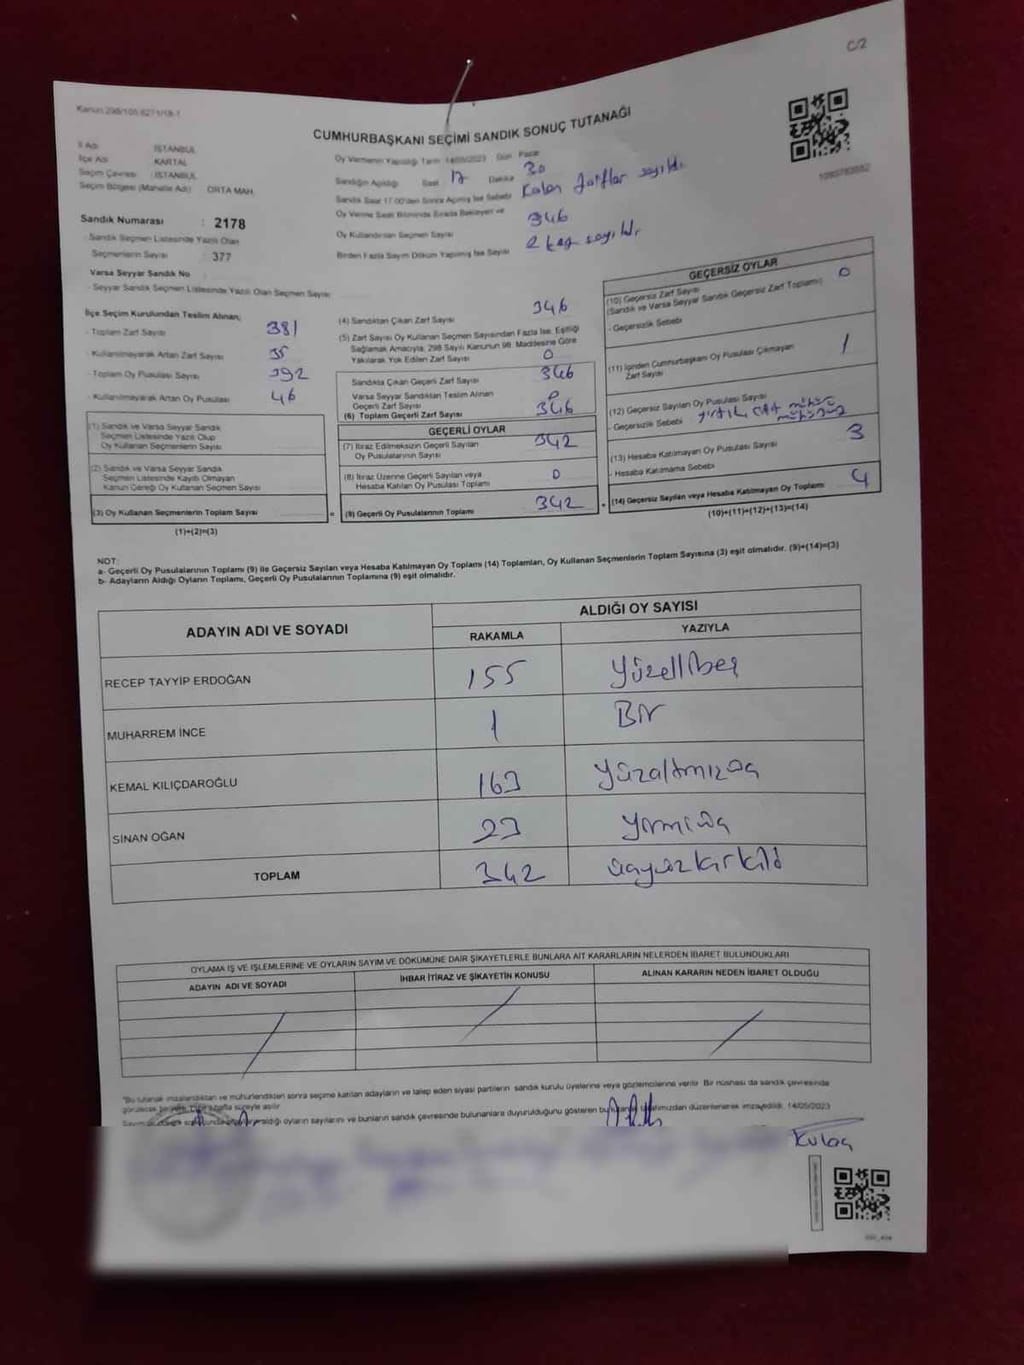 C/2
CUMHURBAŞKANI SEÇİMİ SANDIK SONUÇ TUTANAĞI
İl Adı : İSTANBUL
İlçe Adı : KARTAL
Seçim Çevresi : İSTANBUL
Seçim Bölgesi (Mahalle Adı) ORTA MAH.
Sandık Numarası : 2178
- Sandık Seçmen Listesinde Yazılı Olan
Seçmenlerin Sayısı : 377
Varsa Seyyar Sandık No
- Seyyar Sandık Seçmen Listesinde Yazılı Olan Seçmen Sayısı :
Oy Vermenin Yapıldığı Tarih 14/05/2023 Gün Pazar
Sandığın Açıldığı Saat 17 Dakika 30
Sandık Saat 17.00'den Sonra Açılmış İse Sebebi Kalan zarflar sayıldı.
Oy Verme Saati Bitiminde Sırada Bekleyen ve
Oy Kullandırılan Seçmen Sayısı 346
Birden Fazla Sayım Döküm Yapılmış İse Sayısı 2 kez sayıldı.
İlçe Seçim Kurulundan Teslim Alınan;
- Toplam Zarf Sayısı 381
- Kullanılmayarak Artan Zarf Sayısı 35
- Toplam Oy Pusulası Sayısı 392
- Kullanılmayarak Artan Oy Pusulası 46
(1) Sandık ve Varsa Seyyar Sandık
Seçmen Listesinde Yazılı Olup
Oy Kullanan Seçmenlerin Sayısı
(2) Sandık ve Varsa Seyyar Sandık
Seçmen Listesinde Kayıtlı Olmayan
Kanun Gereği Oy Kullanan Seçmen Sayısı
(3) Oy Kullanan Seçmenlerin Toplam Sayısı
(1)+(2)=(3)
(4) Sandıktan Çıkan Zarf Sayısı 346
(5) Zarf Sayısı Oy Kullanan Seçmen Sayısından Fazla İse, Eşitliği
Sağlamak Amacıyla, 298 Sayılı Kanunun 98. Maddesine Göre
Yakılarak Yok Edilen Zarf Sayısı 0
Sandıkta Çıkan Geçerli Zarf Sayısı 346
Varsa Seyyar Sandıktan Teslim Alınan
Geçerli Zarf Sayısı 0
(6) Toplam Geçerli Zarf Sayısı 346
GEÇERLİ OYLAR
(7) İtiraz Edilmeksizin Geçerli Sayılan
Oy Pusulalarının Sayısı 342
(8) İtiraz Üzerine Geçerli Sayılan veya
Hesaba Katılan Oy Pusulası Toplamı 0
= (9) Geçerli Oy Pusulalarının Toplamı 342
GEÇERSİZ OYLAR
(10) Geçersiz Zarf Sayısı
(Sandık ve Varsa Seyyar Sandık Geçersiz Zarf Toplamı) 0
- Geçersizlik Sebebi
(11) İçinden Cumhurbaşkanı Oy Pusulası Çıkmayan
Zarf Sayısı 1
(12) Geçersiz Sayılan Oy Pusulası Sayısı
- Geçersizlik Sebebi
(13) Hesaba Katılmayan Oy Pusulası Sayısı 3
- Hesaba Katılmama Sebebi
+ (14) Geçersiz Sayılan veya Hesaba Katılmayan Oy Toplamı 4
(10)+(11)+(12)+(13)=(14)
NOT:
a- Geçerli Oy Pusulalarının Toplamı (9) ile Geçersiz Sayılan veya Hesaba Katılmayan Oy Toplamı (14) Toplamları, Oy Kullanan Seçmenlerin Toplam Sayısına (3) eşit olmalıdır. (9)+(14)=(3)
b- Adayların Aldığı Oyların Toplamı, Geçerli Oy Pusulalarının Toplamına (9) eşit olmalıdır.
ADAYIN ADI VE SOYADI
ALDIĞI OY SAYISI
RAKAMLA YAZIYLA
RECEP TAYYİP ERDOĞAN 155 Yüzellibeş
MUHARREM İNCE 1 Bir
KEMAL KILIÇDAROĞLU 163 Yüzaltmışüç
SİNAN OĞAN 23 Yirmiüç
TOPLAM 342 üçyüzkırkiki
OYLAMA İŞ VE İŞLEMLERİNE VE OYLARIN SAYIM VE DÖKÜMÜNE DAİR ŞİKAYETLERLE BUNLARA AİT KARARLARIN NELERDEN İBARET BULUNDUKLARI
ADAYIN ADI VE SOYADI İHBAR İTİRAZ VE ŞİKAYETİN KONUSU ALINAN KARARIN NEDEN İBARET OLDUĞU
*Bu tutanak imzalandıktan ve mühürlendikten sonra seçime katılan adayların ve talep eden siyasi partilerin sandık kurulu üyelerine veya gözlemcilerine verilir. Bir nüshası da sandık çevresinde
14/05/2023